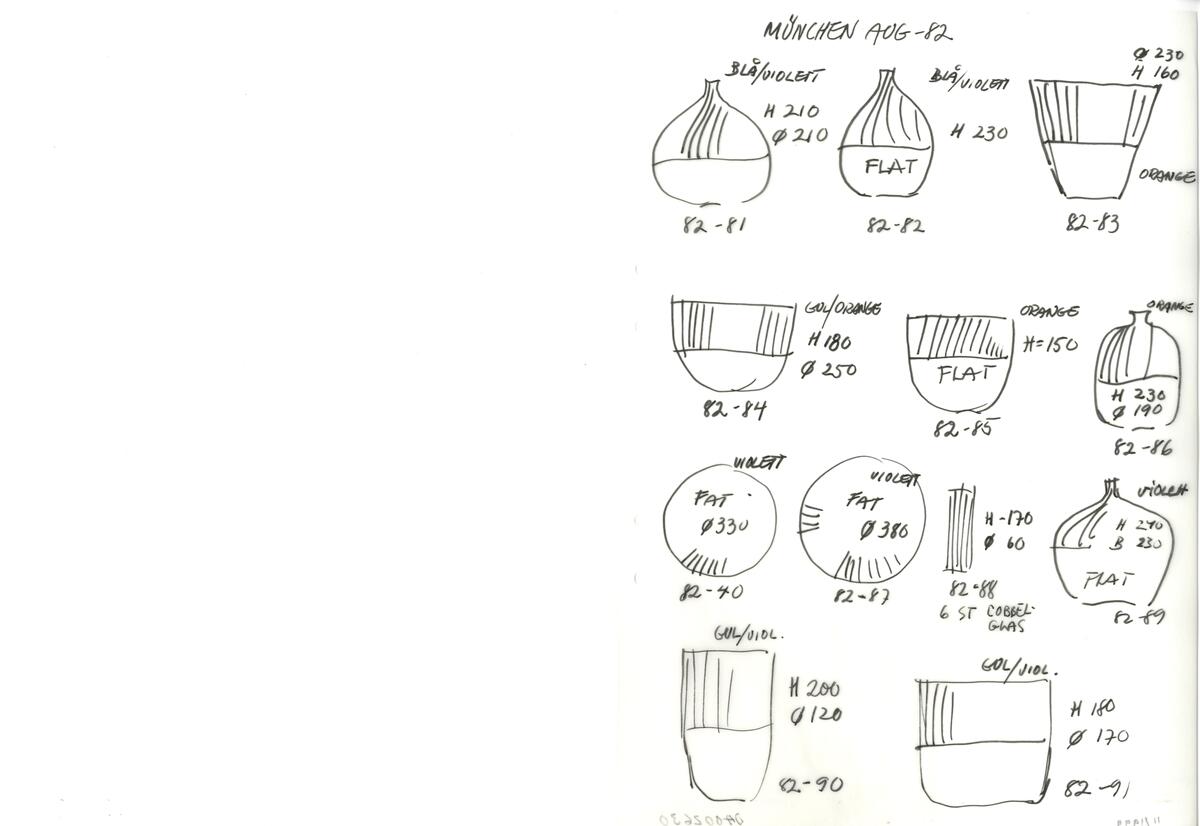 MÜNCHEN AUG-82
BLÅ/VIOLETT
H 210
Ø 210
82-81
BLÅ/VIOLETT
H 230
FLAT
82-82
Ø 230
H 160
ORANGE
82-83
GUL/ORANGE
H 180
Ø 250
82-84
ORANGE
H=150
FLAT
82-85
ORANGE
H 230
Ø 190
82-86
VIOLETT
FAT
Ø330
82-40
VIOLETT
FAT
Ø 380
82-87
H-170
Ø 60
82-88
6 ST COBBEL-
GLAS
VIOLETT
B 230
FLAT
82-89
GUL/VIOL.
H 200
Ø 120
82-90
GUL/VIOL.
H 180
Ø 170
82-91